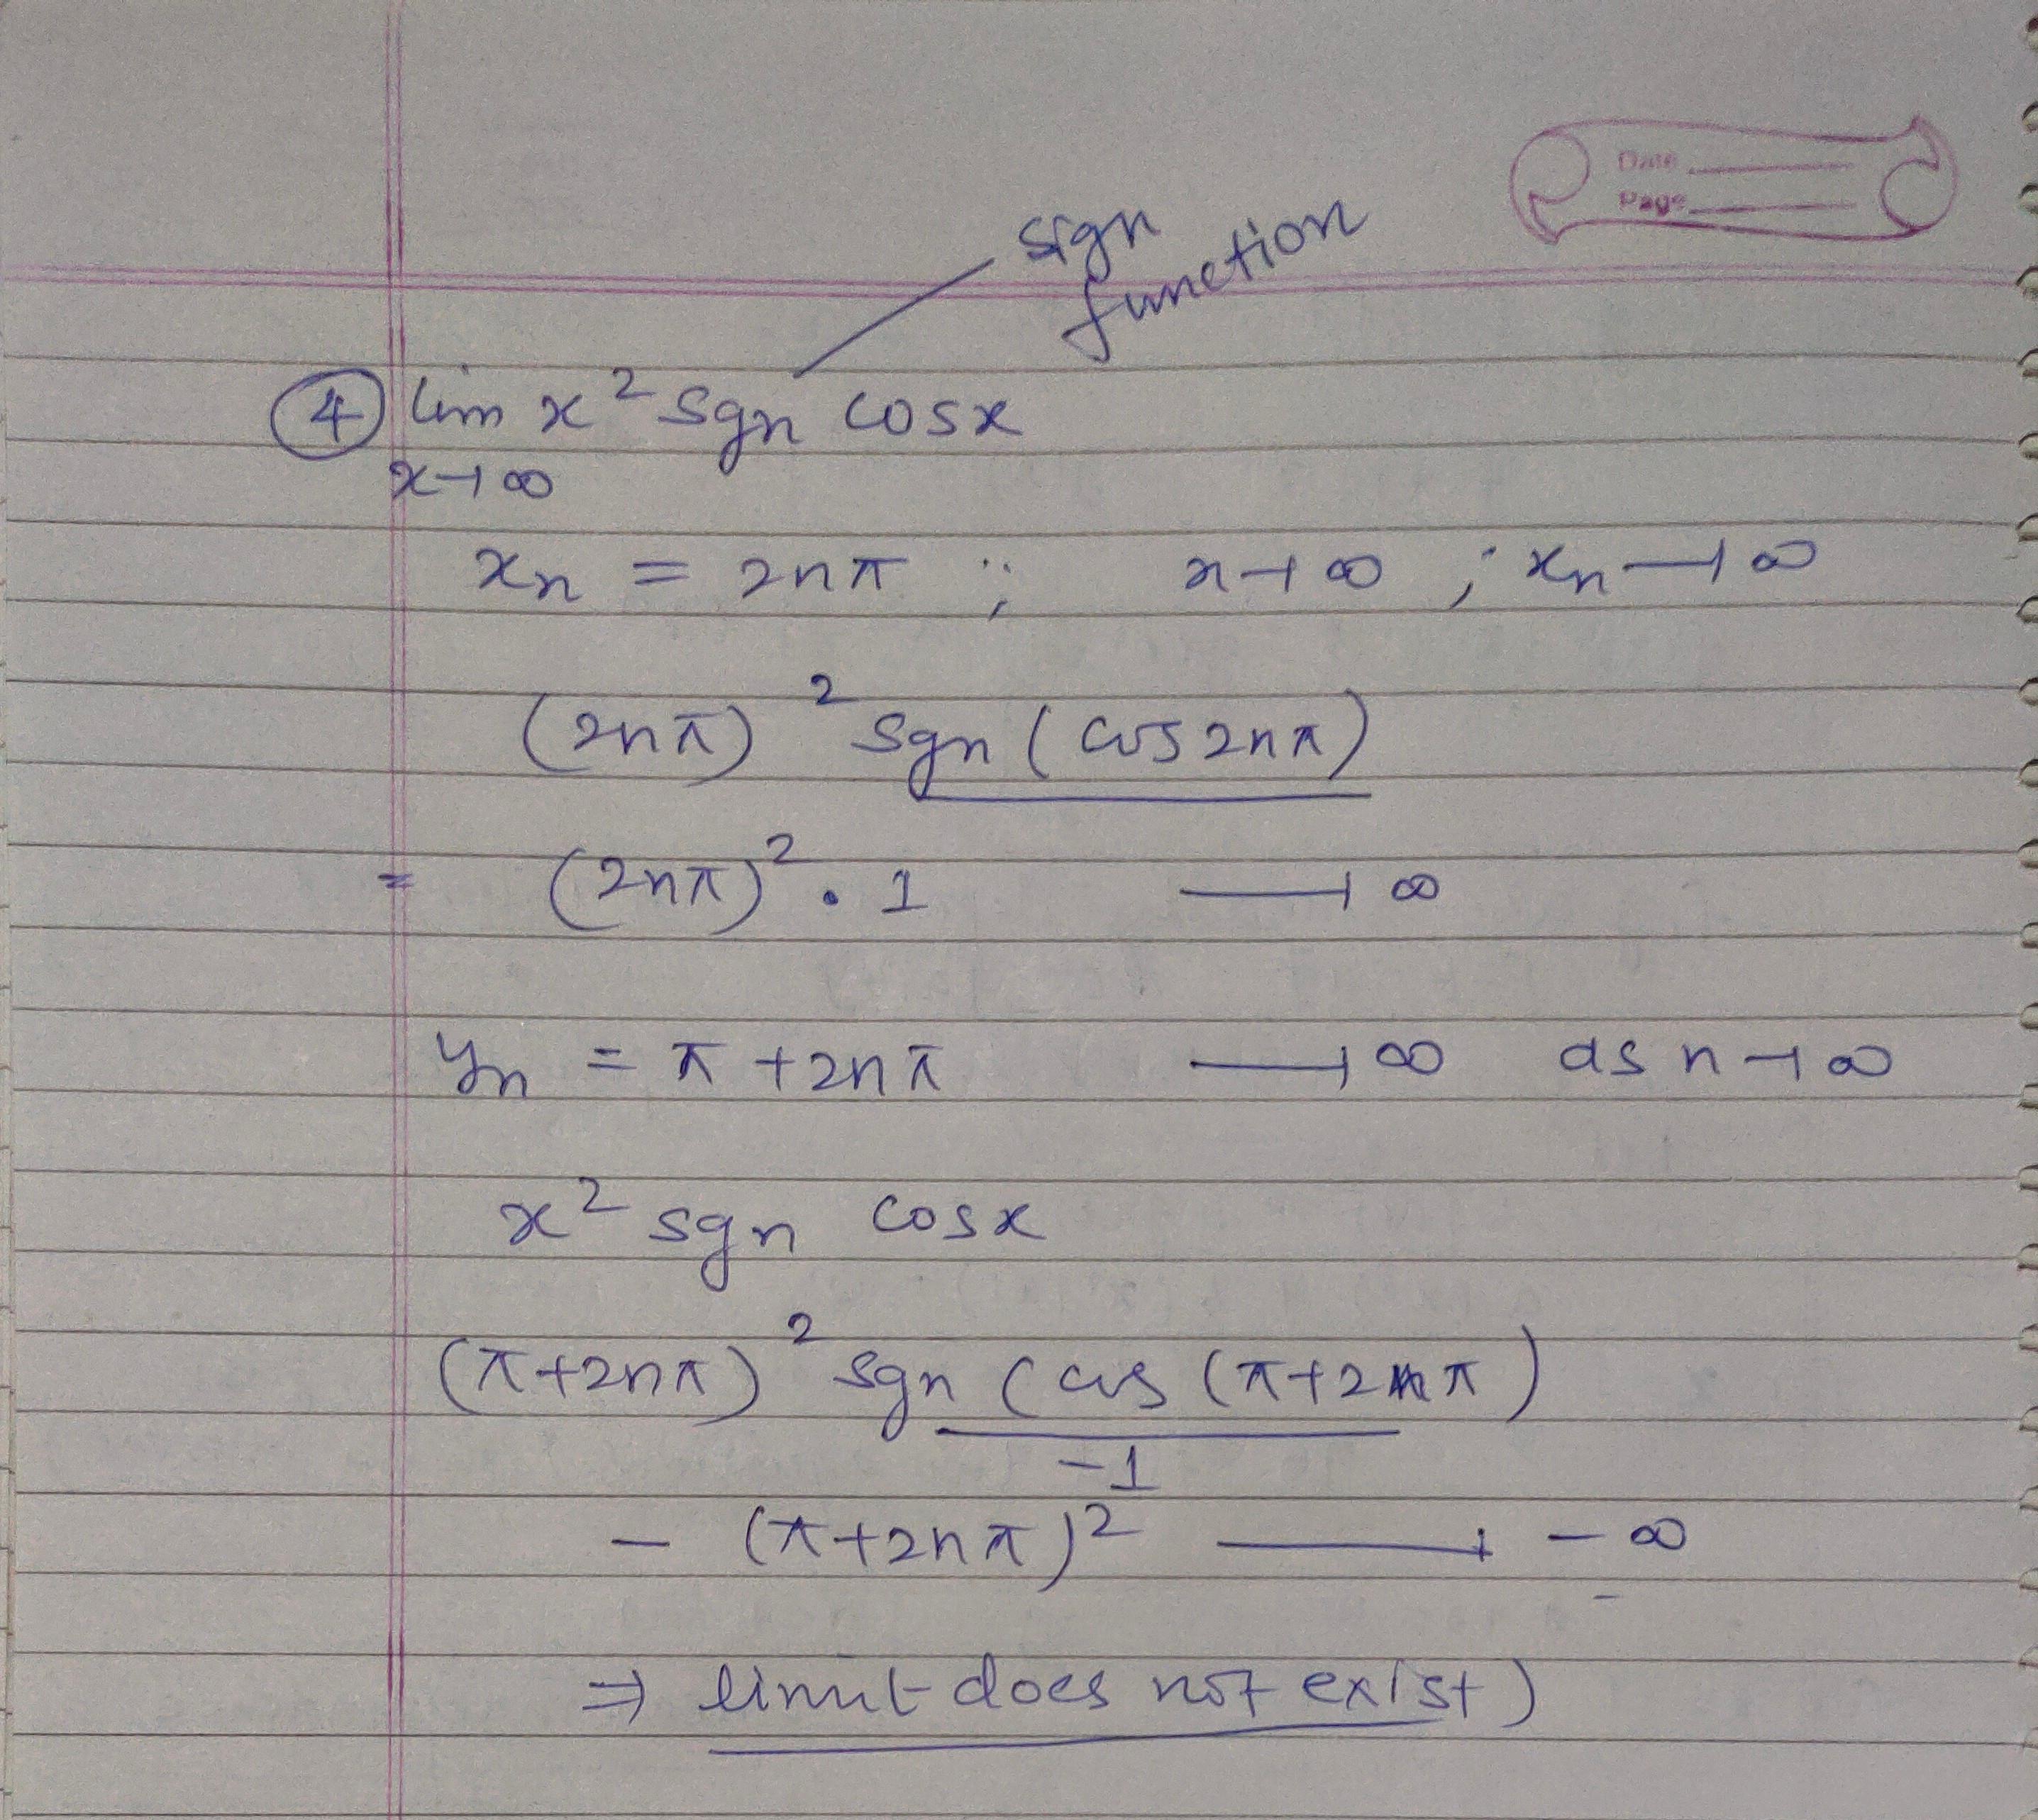 Date
Page
sign
function
④ lim x² sgn cosx
x→∞
xn = 2nπ ;; n→∞ ; xn→∞
(2nπ)² sgn (cos2nπ)
= (2nπ)² . 1 → ∞
yn = π + 2nπ → ∞ as n→∞
x² sgn cosx
(π+2nπ)² sgn (cos (π+2nπ)
-1
- (π+2nπ)² → - ∞
⇒ limit does not exist)